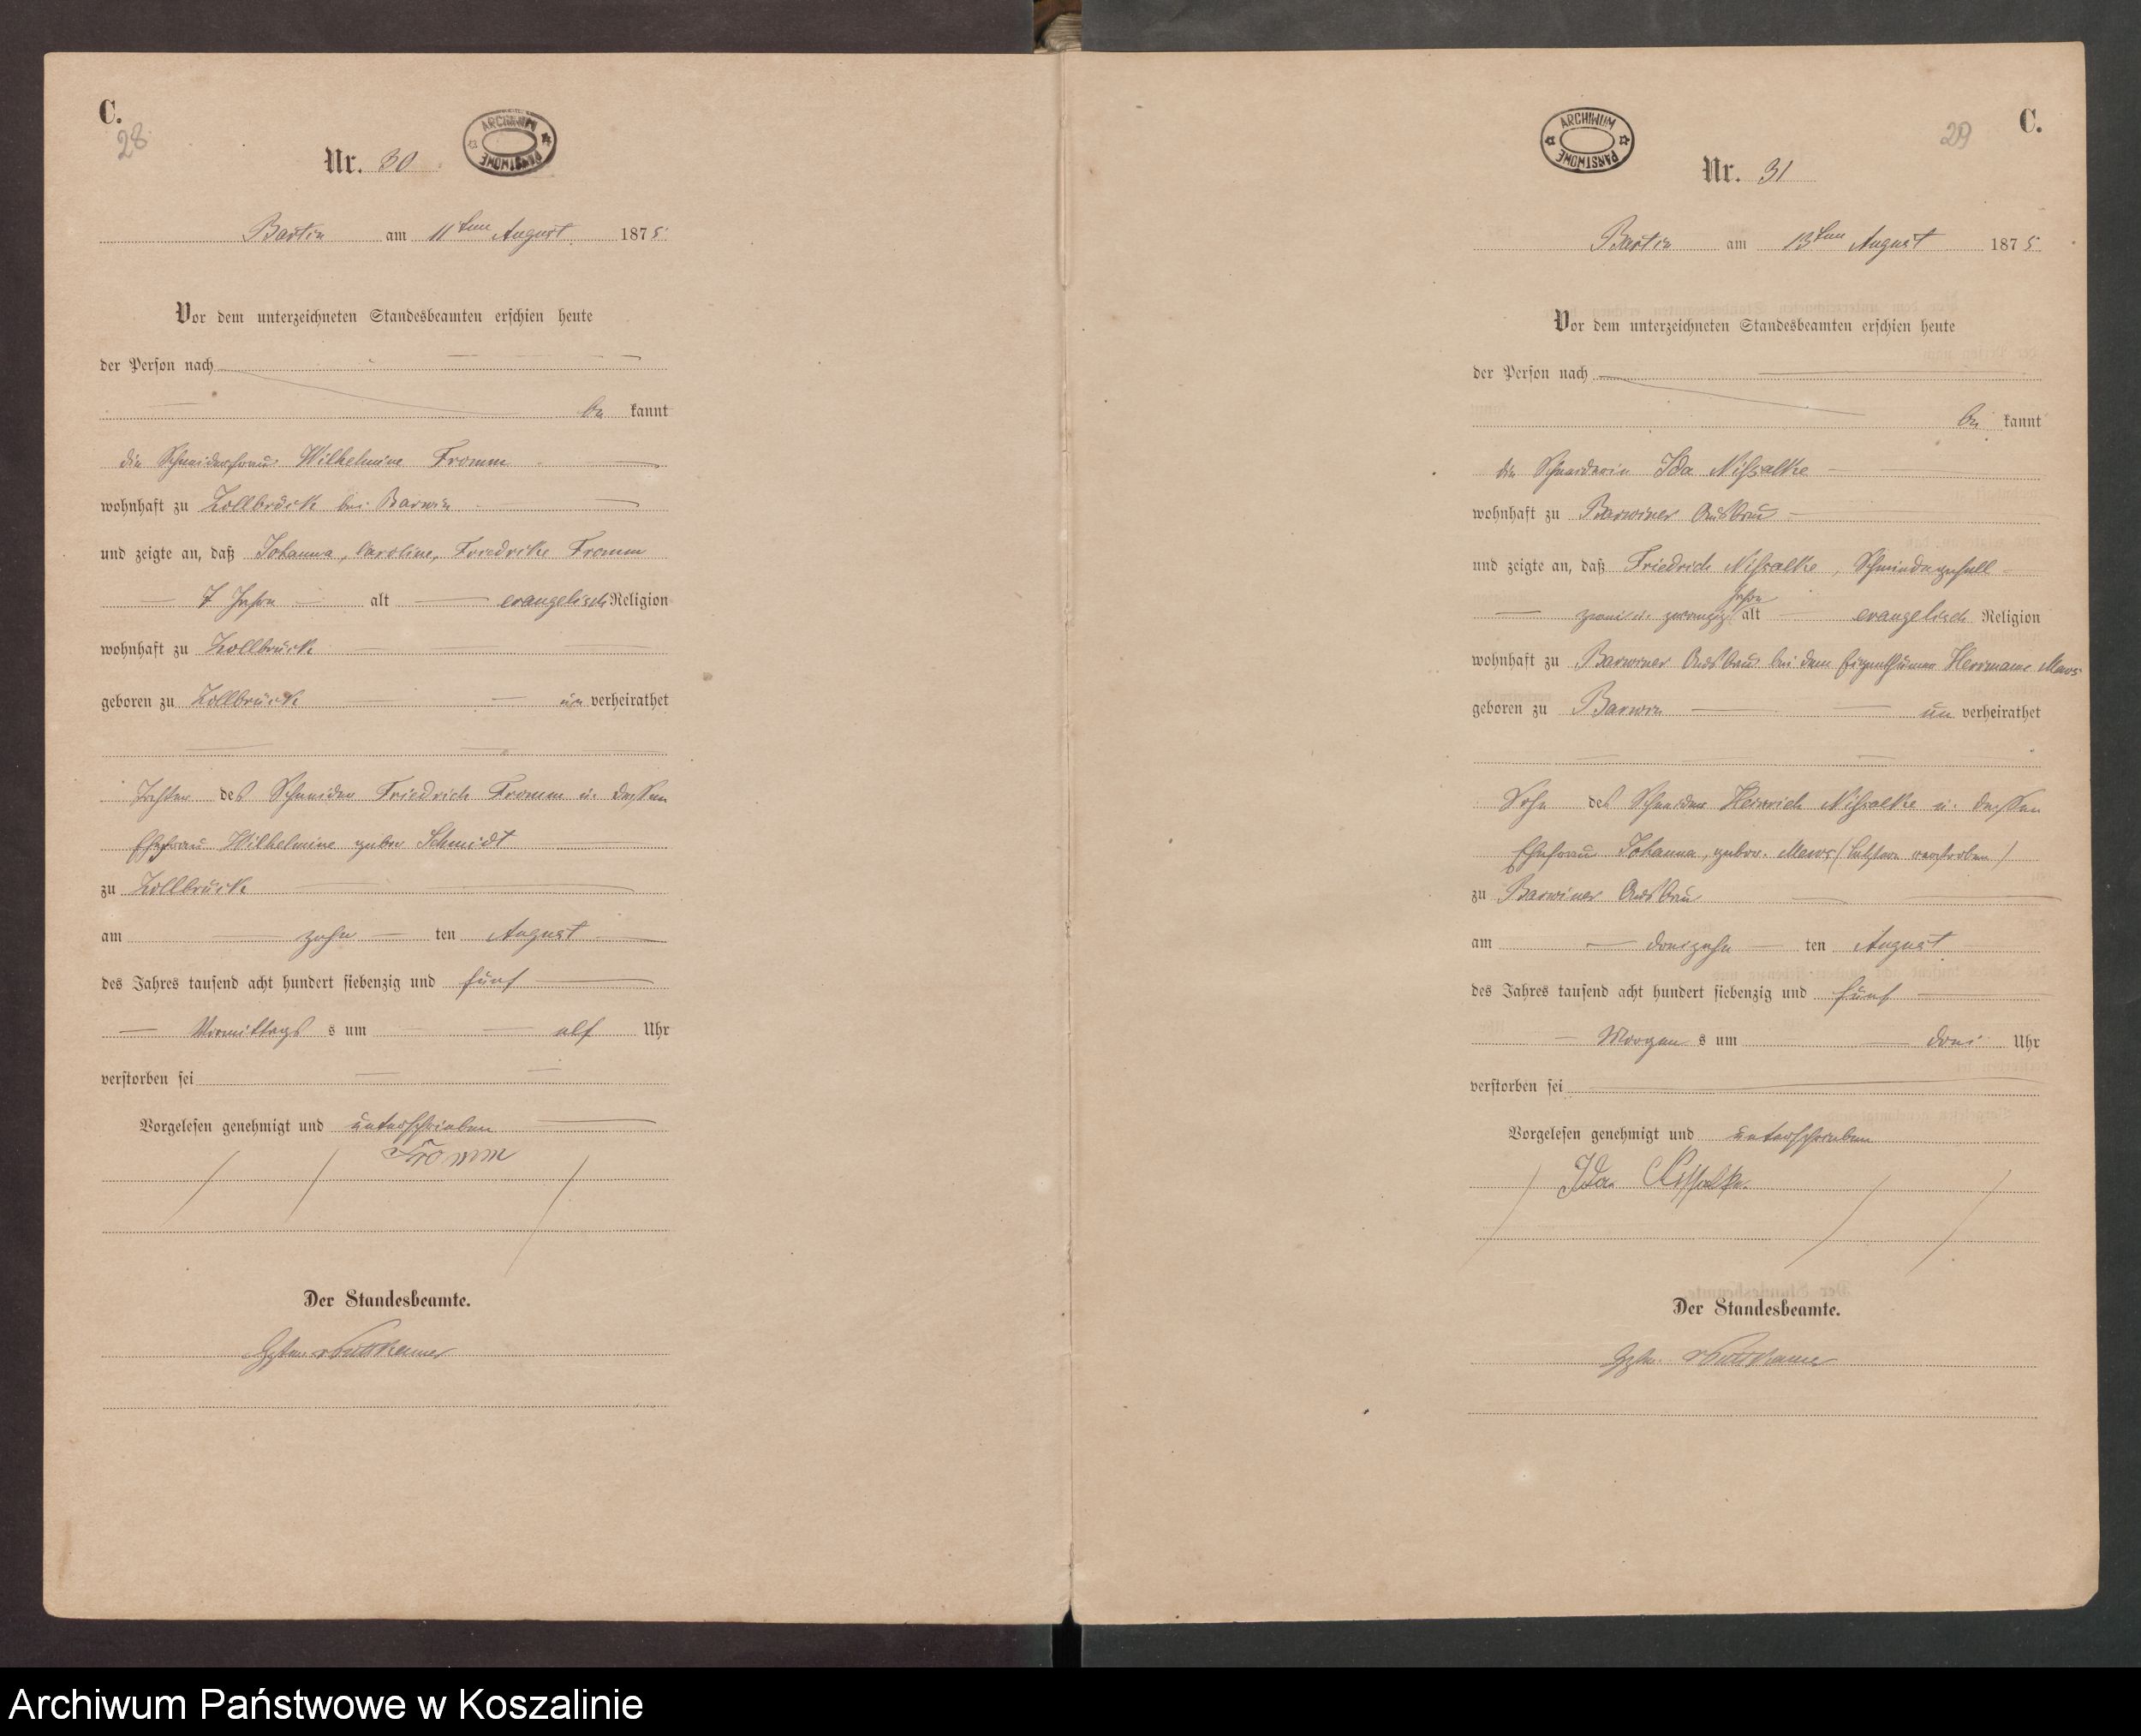 C.
28
Nr. 30
ARCHIWUM PAŃSTWOWE
Bartin am 11ten August 1875
Vor dem unterzeichneten Standesbeamten erschien heute
der Person nach
be kannt
die Schneiderfrau Wilhelmine Fromm
wohnhaft zu Zollbrück bei Barwin
und zeigte an, daß Johanna, Caroline, Friedrike Fromm
7 Jahre alt evangelisch Religion
wohnhaft zu Zollbrück
geboren zu Zollbrück un verheirathet
Tochter des Schneider Friedrich Fromm u. dessen
Ehefrau Wilhelmine gebor Schmidt
zu Zollbrück
am zehn ten August
des Jahres tausend acht hundert siebenzig und fünf
Vormittags s um elf Uhr
verstorben sei
Vorgelesen genehmigt und unterschrieben
Fromm
Der Standesbeamte.
v Puttkamer
C.
29
Nr. 31
ARCHIWUM PAŃSTWOWE
Bartin am 13ten August 1875
Vor dem unterzeichneten Standesbeamten erschien heute
der Person nach
be kannt
die Schneiderin Ida Nissalke
wohnhaft zu Barwiner Ausbau
und zeigte an, daß Friedrich Nissalke, Schmiedegesell
zwei u. zwanzig Jahre alt evangelisch Religion
wohnhaft zu Barwiner Ausbau bei dem Eigenthümer Herrmann Maws
geboren zu Barwin un verheirathet
Sohn des Schneider Heinrich Nissalke u. dessen
Ehefrau Johanna, gebor. Maws (letztere verstorben)
zu Barwiner Ausbau
am dreizehn ten August
des Jahres tausend acht hundert siebenzig und fünf
Morgen s um drei Uhr
verstorben sei
Vorgelesen genehmigt und unterschrieben
Ida Nissalke
Der Standesbeamte.
v Puttkamer
Archiwum Państwowe w Koszalinie